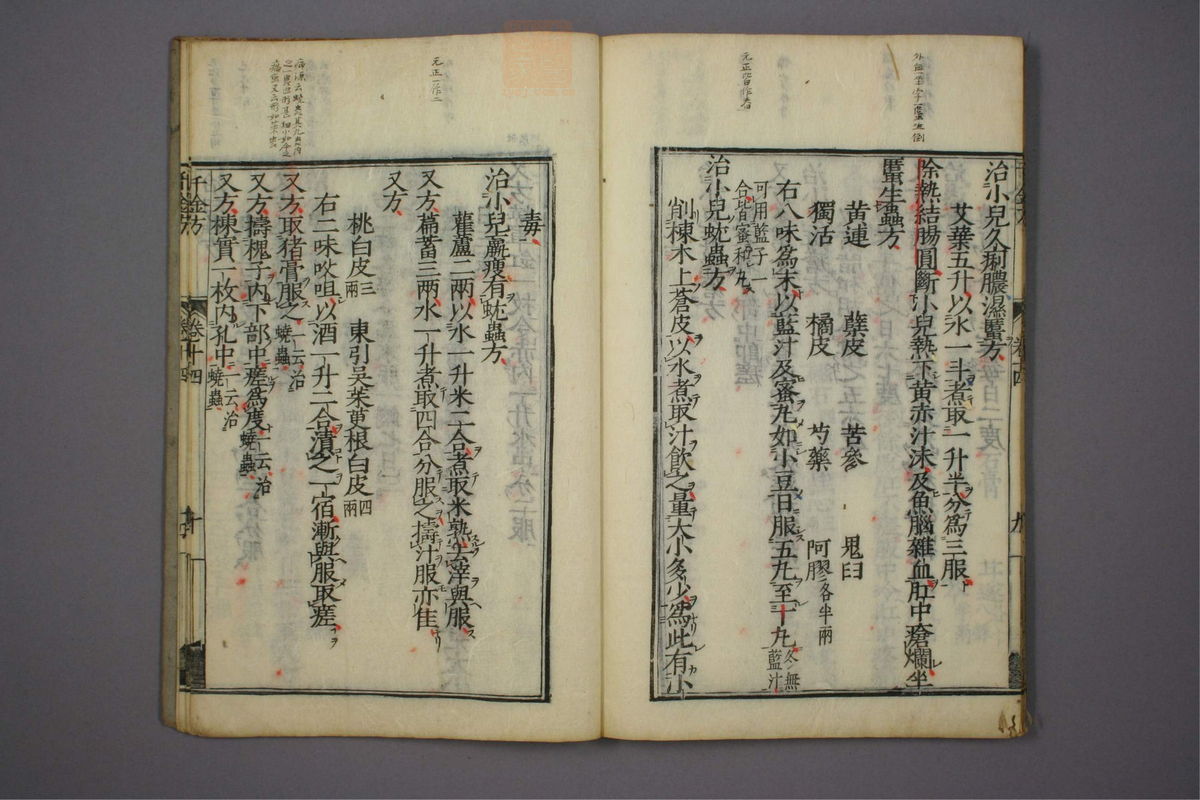 治小兒久痢膿濕䘌方
艾葉五升以水一斗煮取一升半分為三服
除熱結腸圓斷小兒熱下黃赤汁沫及魚腦雜血肛中瘡爛坐
䘌生蟲方
黃連 蘗皮 苦參 鬼臼
獨活 橘皮 芍藥 阿膠各半兩
右八味為末以藍汁及蜜丸如小豆日服五丸至十丸冬無藍汁
可用藍子一
合皆蜜和丸
治小兒蚘蟲方
削楝木上蒼皮以水煮取汁飲之量大小多少為此有小
毒
治小兒羸瘦有蚘蟲方
雚蘆二兩以水一升米二合煮取米熟去滓與服
又方萹蓄三兩水一升煮取四合分服之擣汁服亦佳
又方
桃白皮三兩 東引吳茱萸根白皮四兩
右二味㕮咀以酒一升二合漬之一宿漸與服取瘥
又方取猪膏服之一云治蟯蟲
又方擣槐子內下部中瘥為度一云治蟯蟲
又方楝實一枚內孔中一云治蟯蟲
千金方 卷十四 十
卷十四 九
元正皆作者
元正一作二